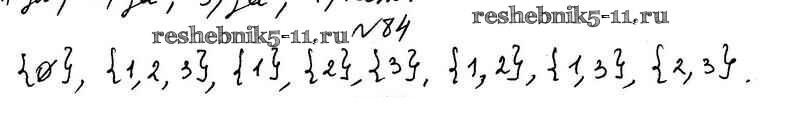 reshebnik5-11.ru
reshebnik5-11.ru №84
{∅}, {1, 2, 3}, {1}, {2}, {3}, {1, 2}, {1, 3}, {2, 3}.